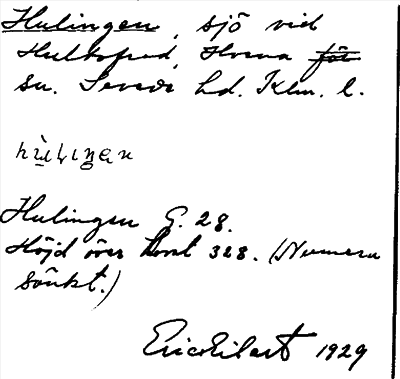 Hulingen, sjö vid
Hultsfred, Hvena för
sn. Sevede hd. Klm. l.
Hulingen G. 28.
Höjd över havet 328. (Numera
sänkt.)
Eric Eilert 1929